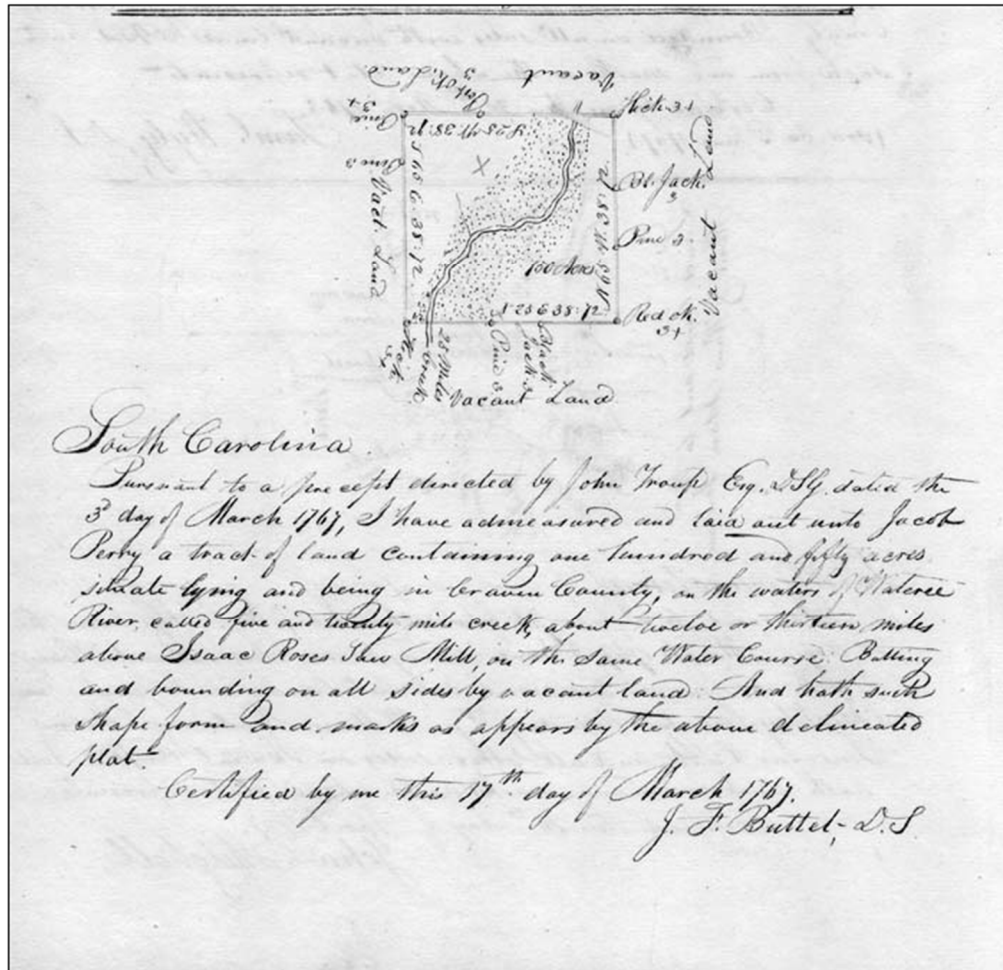 Vacant Land
Hick 3+
Pine
3+
Pine 3
S 25 W 38.12
S 65 E 38.12
Vact. Land
Bl. Jack
3
Pine 3
Vacant Land
150 Acres
N 65 W 38.12
N 25 E 38.12
Red ok.
3+
25 Mile
Creek
Pine 3
Black
Jack 3
Vacant Land
South Carolina.
Pursuant to a precept directed by John Troup Esq. D.S.G. dated the
3d day of March 1767, I have admeasured and laid out unto Jacob
Perry a tract of land containing one hundred and fifty acres
situate lying and being in Craven County, on the waters of Wateree
River, called five and twenty mile creek, about twelve or thirteen miles
above Isaac Roses Saw Mill, on the same Water Course: Butting
and bounding on all sides by vacant land: And hath such
shape form and marks as appears by the above delineated
plat.
Certified by me this 17th day of March 1767.
J. F. Buttet, D.S.